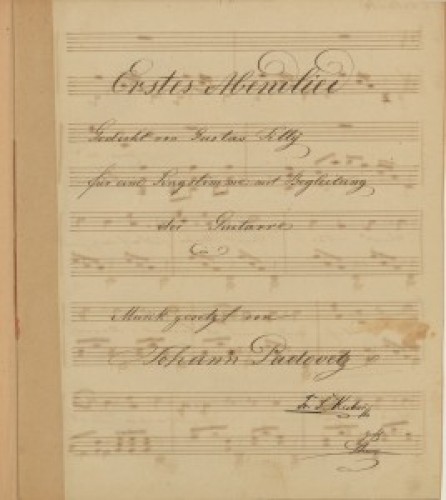 Erstes Abendlied
Gedicht von Gustav
für eine Singstimme mit Begleitung
der Guitarre
Musik gesetzt von
Johann Padovetz